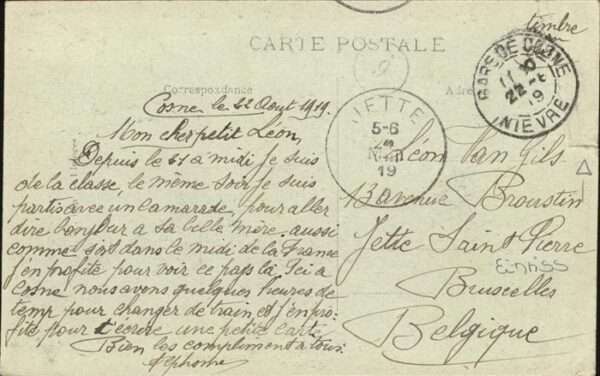 timbre
CARTE POSTALE
Correspondance
Adre
GARE DE COSNE
22-8
19
NIEVRE
JETTE
5-6
19
Cosne le 22 Aout 1919.
Mon cher petit Léon,
Depuis le 21 a midi je suis
de la classe, le même soir je suis
parti avec un camarade, pour aller
dire bonjour a sa belle mère. aussi
comme sont dans le midi de la France
j'en profite pour voir ce pays là. Ici a
Cosne nous avons quelques heures de
temp pour changer de train et j'en pro-
fite pour t'ecrire une petite carte
Bien les compliment a tous
Alphonse
Léon Van Gils
13 avenue Broustin
Jette Saint Pierre
Bruxelles
Belgique